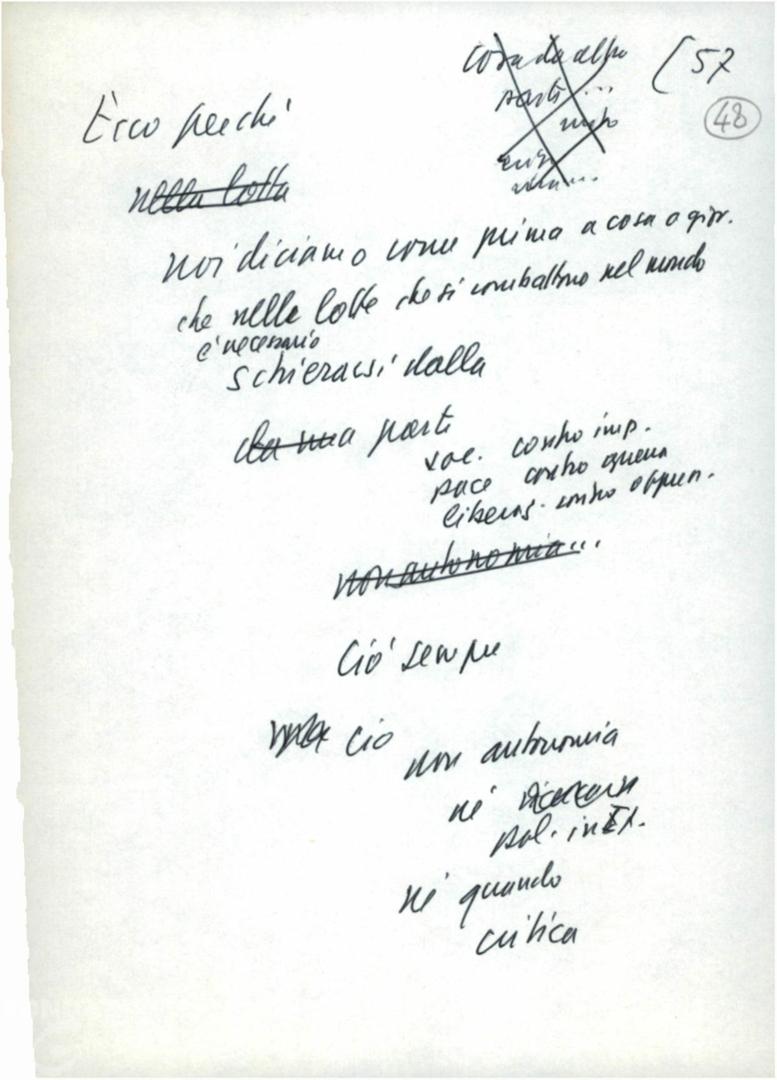 [57
48
Ecco perché
nella lotta
noi diciamo come prima a cosa o gior.
che nelle lotte che si combattono nel mondo
è necessario
schierarsi dalla
da una parte
soc. contro imp.
pace contro guerra
liberaz. contro oppren.
non autonomia...
Ciò sempre
ciò
non autonomia
né
pol. int.
né quando
critica